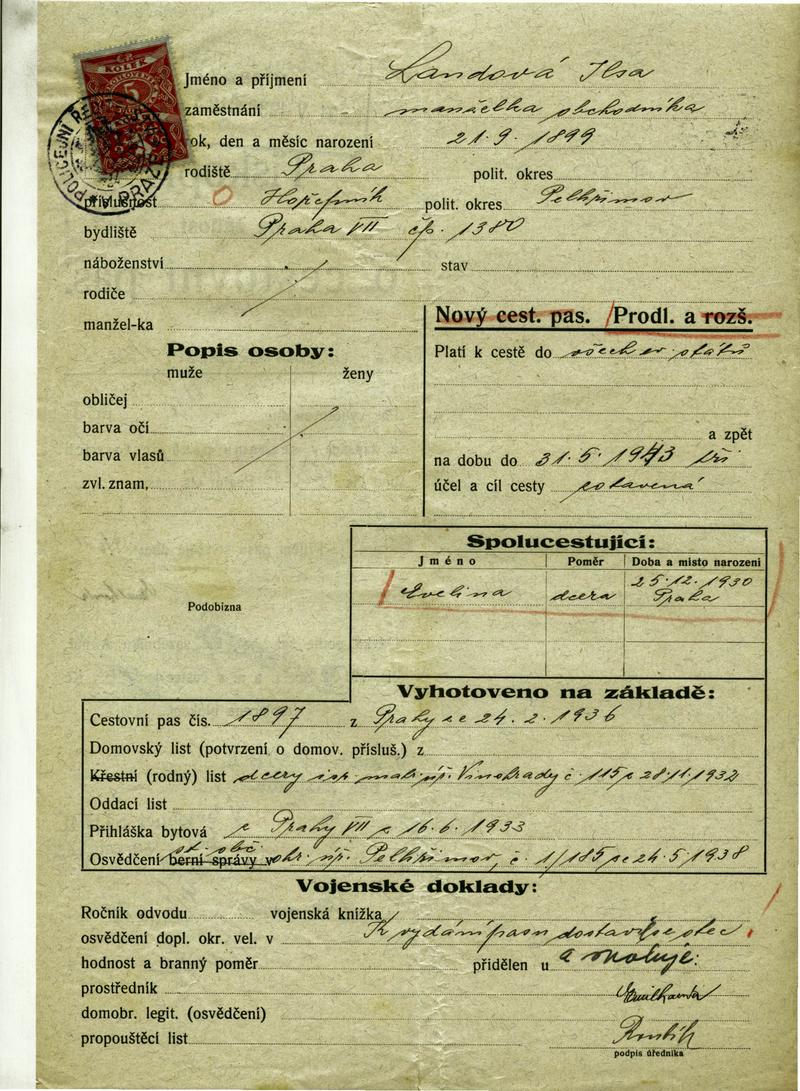 KOLEK
5
POLICEJNÍ ŘED
PRAZE
Jméno a příjmení Landová Ilsa
zaměstnání manželka obchodníka
rok, den a měsíc narození 21. 9. 1899
rodiště Praha polit. okres
příslušnost Hořepník polit. okres Pelhřimov
bydliště Praha VII čp. 1380
náboženství stav
rodiče
manžel-ka
Nový cest. pas. Prodl. a rozš.
Popis osoby:
muže ženy
obličej
barva očí
barva vlasů
zvl. znam,
Platí k cestě do všech ev. států
a zpět
na dobu do 31. 5. 1943 tři
účel a cíl cesty
Podobizna
Spolucestující:
Jméno Poměr Doba a místo narození
Evelina dcera 25. 12. 1930
Praha
Vyhotoveno na základě:
Cestovní pas čís. 1897 z Prahy ze 24. 2. 1936
Domovský list (potvrzení o domov. přísluš.) z
Křestní (rodný) list dcery isr. mat. úř. Vinohrady č. 115 z 28. 11. 1932
Oddací list
Přihláška bytová z Prahy VII z 16. 6. 1933
st. obč.
Osvědčení berní správy v okr. úř. Pelhřimov, č. 1/185 ze 24. 5. 1938
Vojenské doklady:
Ročník odvodu vojenská knížka
osvědčení dopl. okr. vel. v K vydání pasu dostavil se otec
hodnost a branný poměr přidělen u a svoluje:
prostředník
domobr. legit. (osvědčení)
propouštěcí list
podpis úředníka